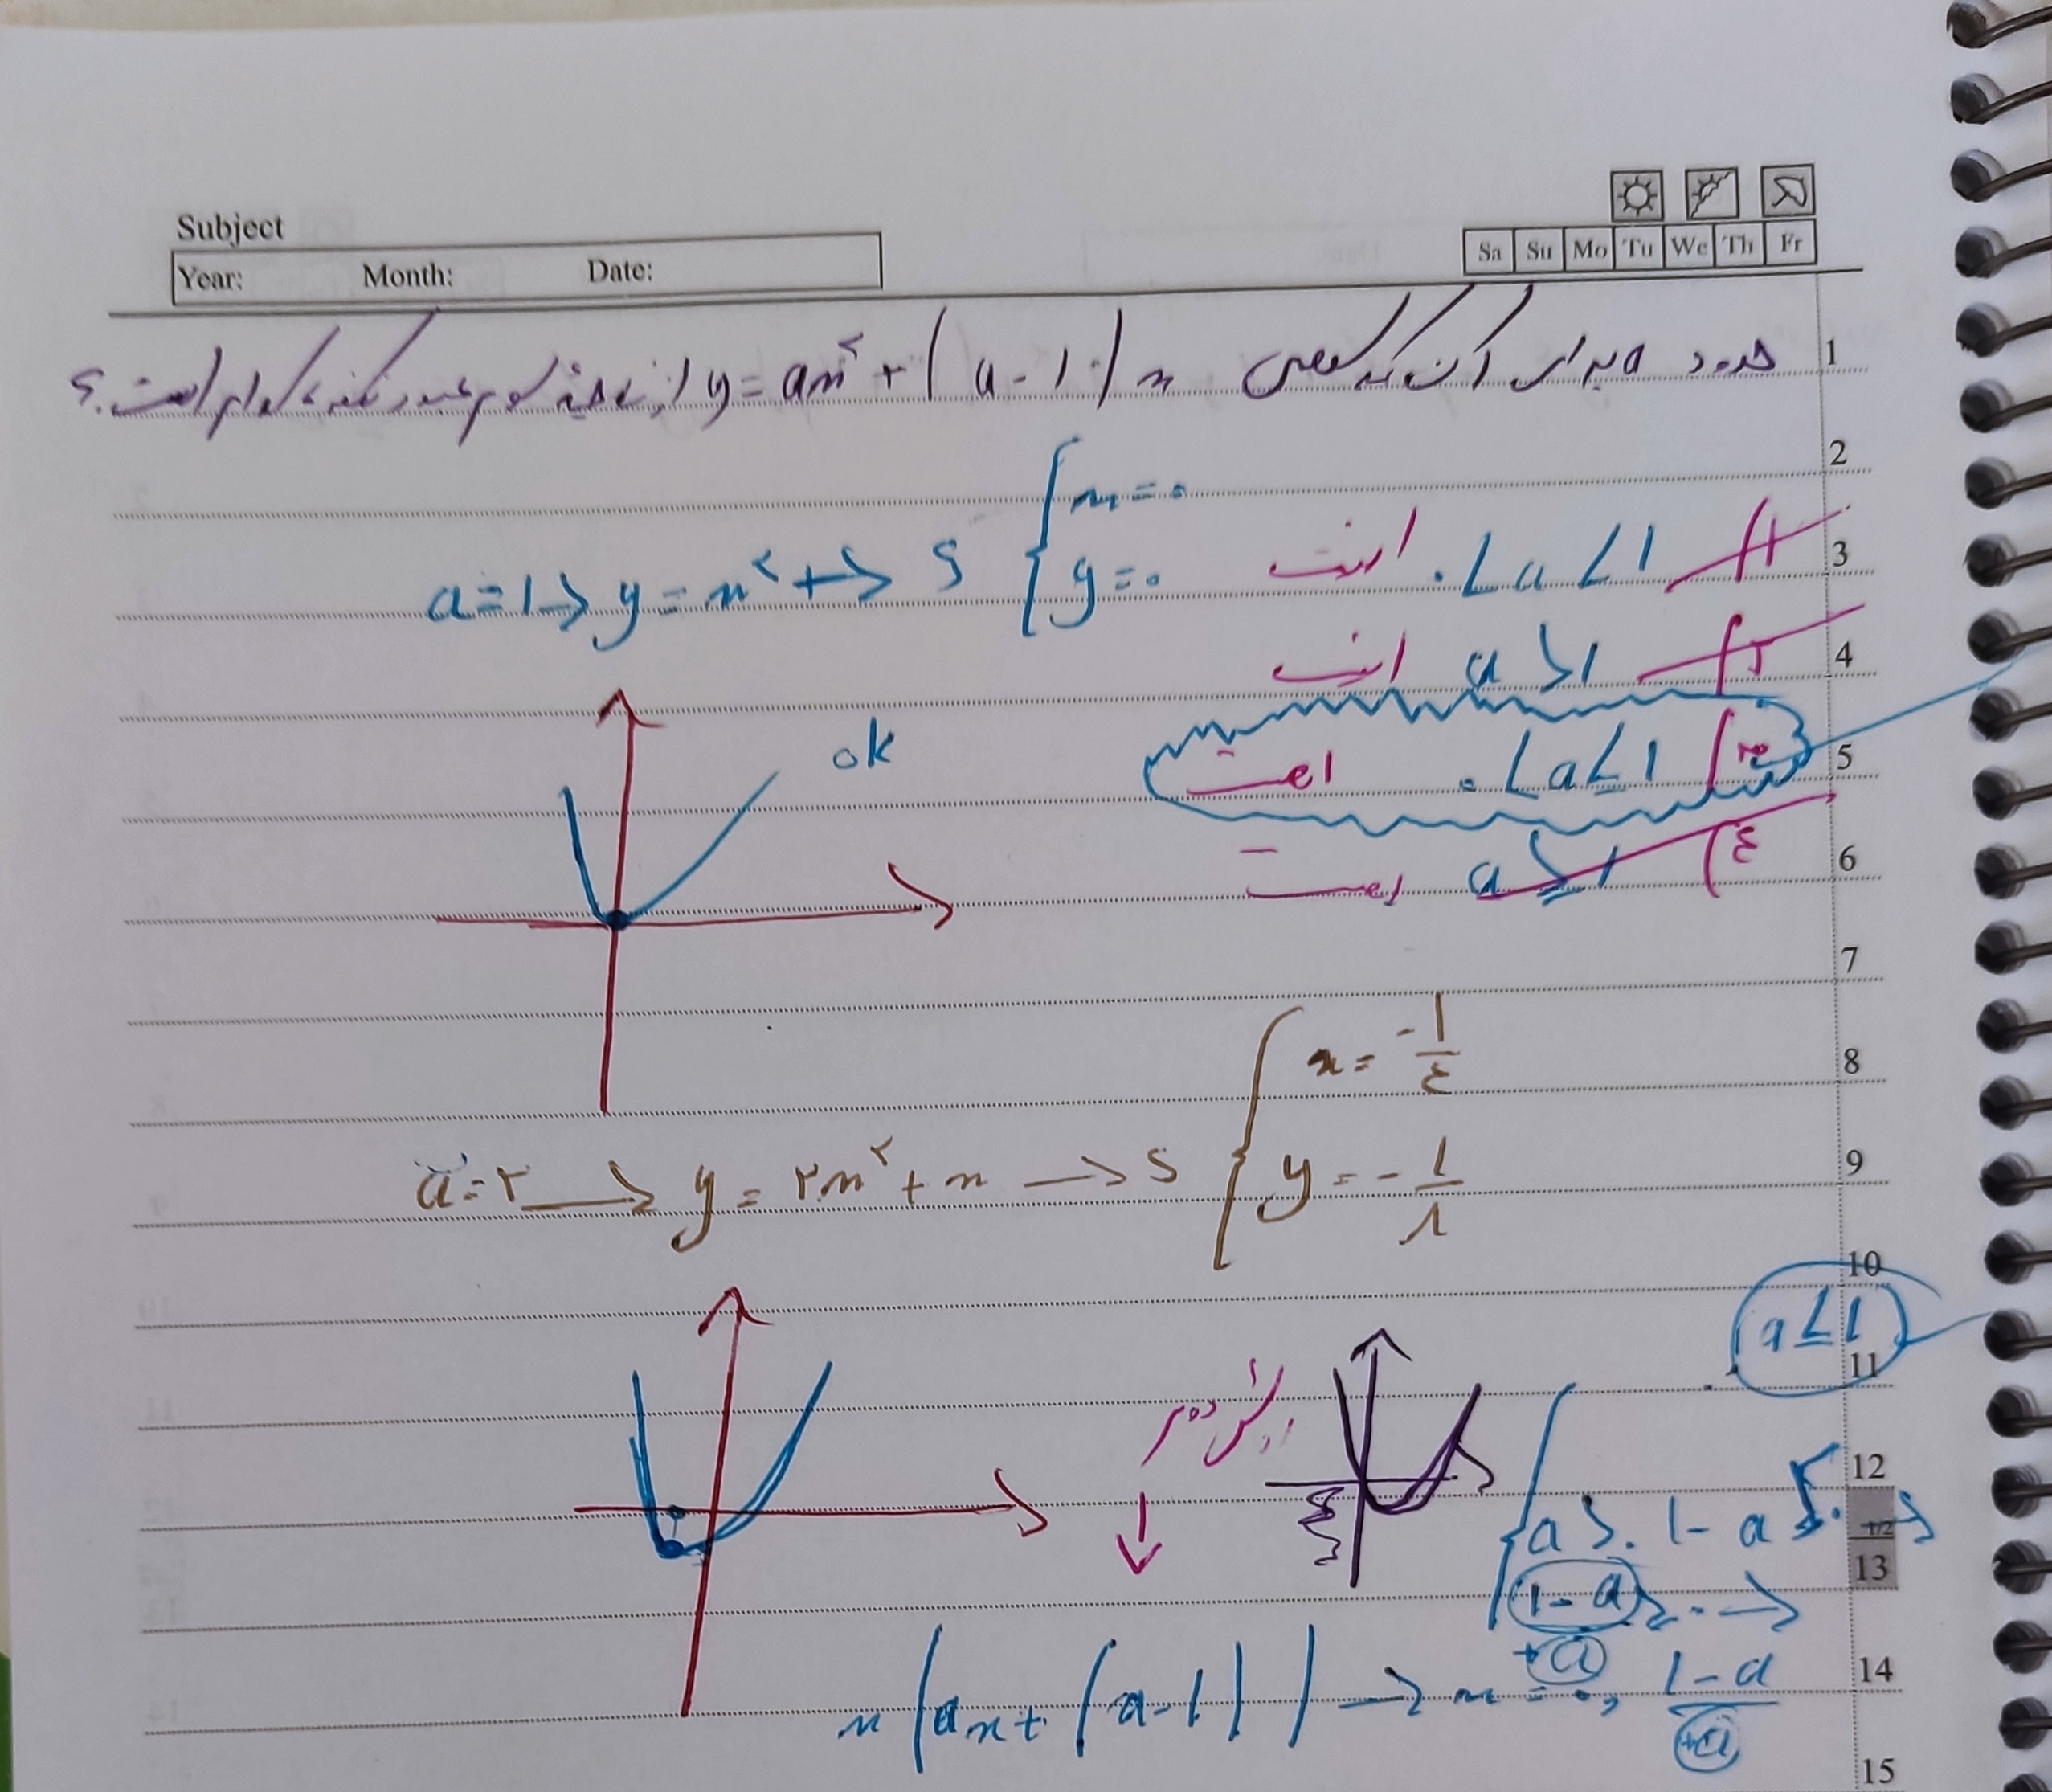 Subject
Year: Month: Date:
Sa Su Mo Tu We Th Fr
1 حدود a برای آن که سهمی y = ax² + (a - 1)x از ناحیه سوم عبور نکند کدام است؟
2
x = ۰
a = 1 → y = x² + → S { y = ۰
3 ۱) ۰ < a < 1 است
4 ۲) a > 1 است
5 ۳) ۰ < a ≤ 1 است
6 ۴) a ≥ 1 است
ok
7
8 x = -1/۴
9 a = ۲ → y = ۲x² + x → S { y = -1/۸
10
11 a ≤ 1
روش دوم
12
a > ۰ 1 - a ≥ ۰ →
1/2
13
(1 - a)/+a ≥ ۰ →
14 x(ax + (a - 1)) → x = ۰, (1 - a)/+a
15